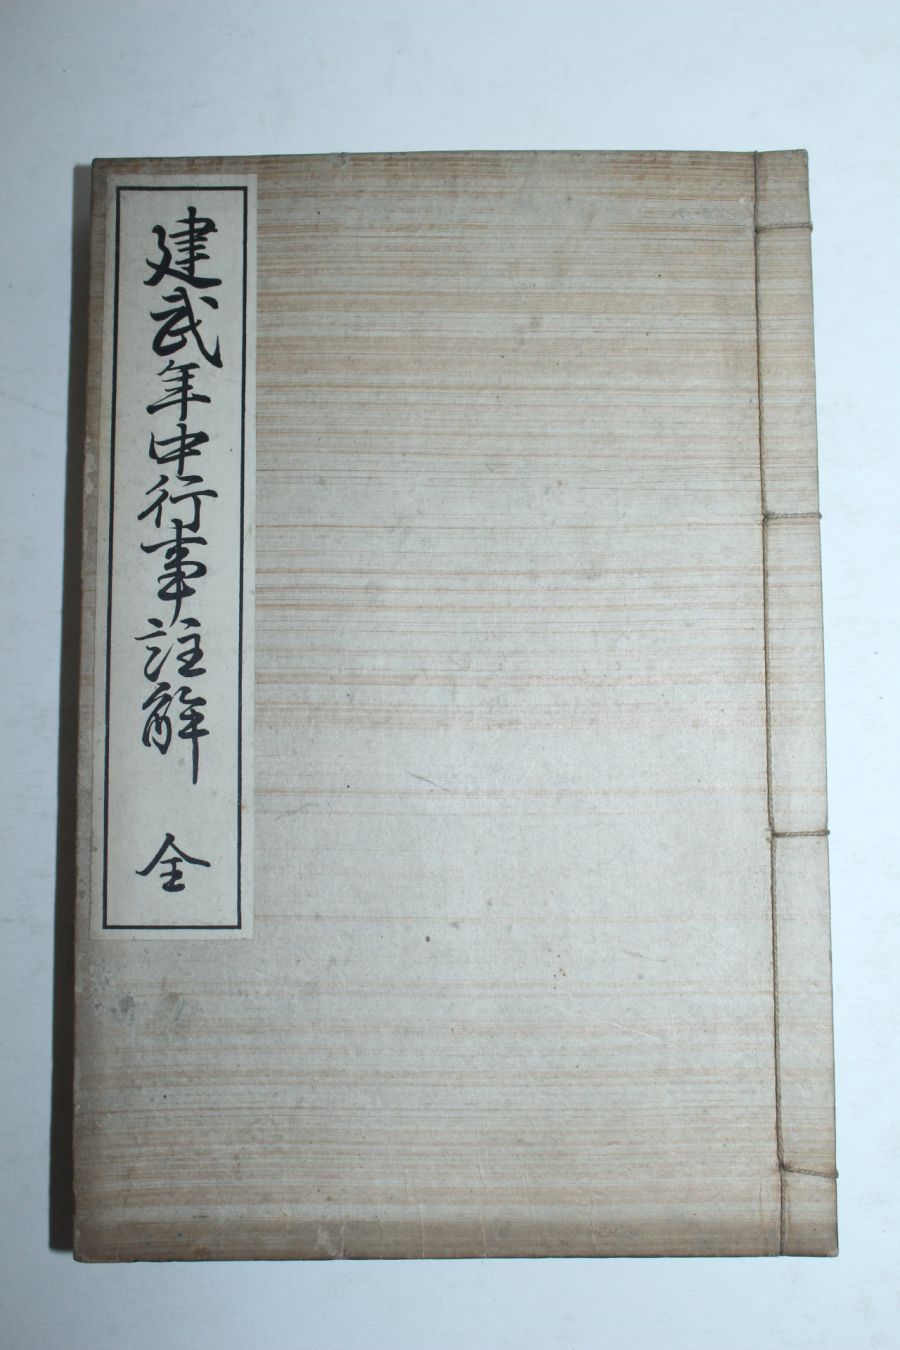 建武年中行事註解　全